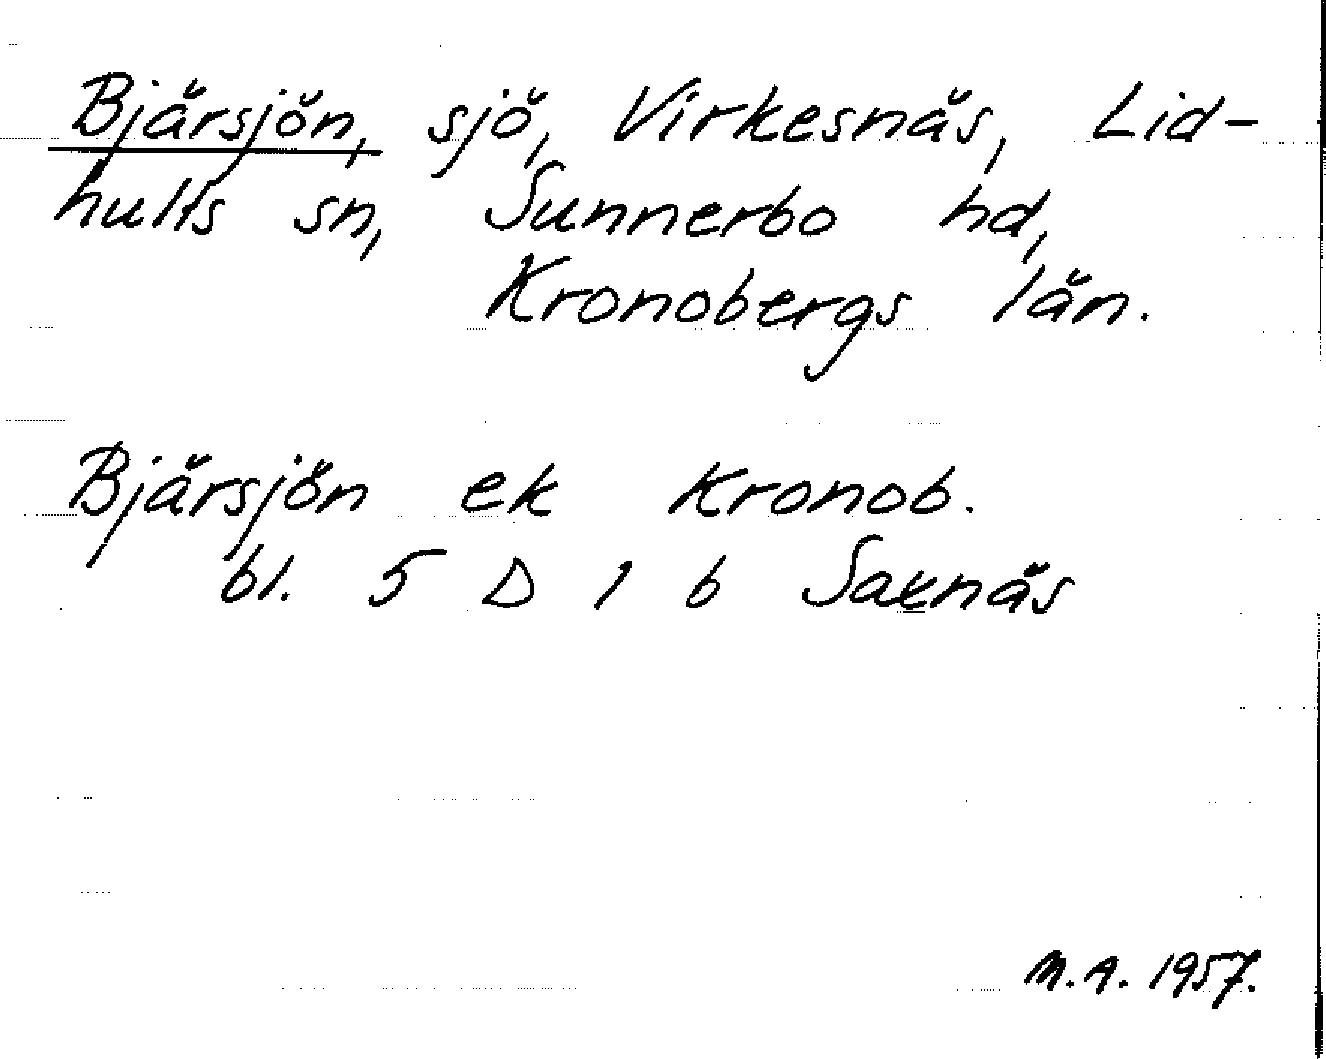 Bjärsjön, sjö, Virkesnäs, Lid-
hults sn, Sunnerbo hd,
Kronobergs län.
Bjärsjön ek Kronob.
bl. 5 D 1 b Saxnäs
M.A. 1957.